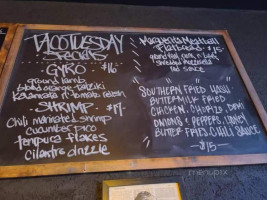 TACO TUESDAY
Specials
GYRO · $16
ground lamb
blood orange tatziki
Kalamata n' tomato relish
SHRIMP · $17
Chili marinated shrimp
cucumber pico
tempura flakes
cilantro drizzle
Margherita Meatball
Flatbread · $15
shredded mozzarella
red sauce
SOUTHERN FRIED
BUTTERMILK FRIED
CHICKEN, CHORIZO,
ONIONS & PEPPERS, HONEY
BUTTER FRIED CHILI SAUCE
— $15 —